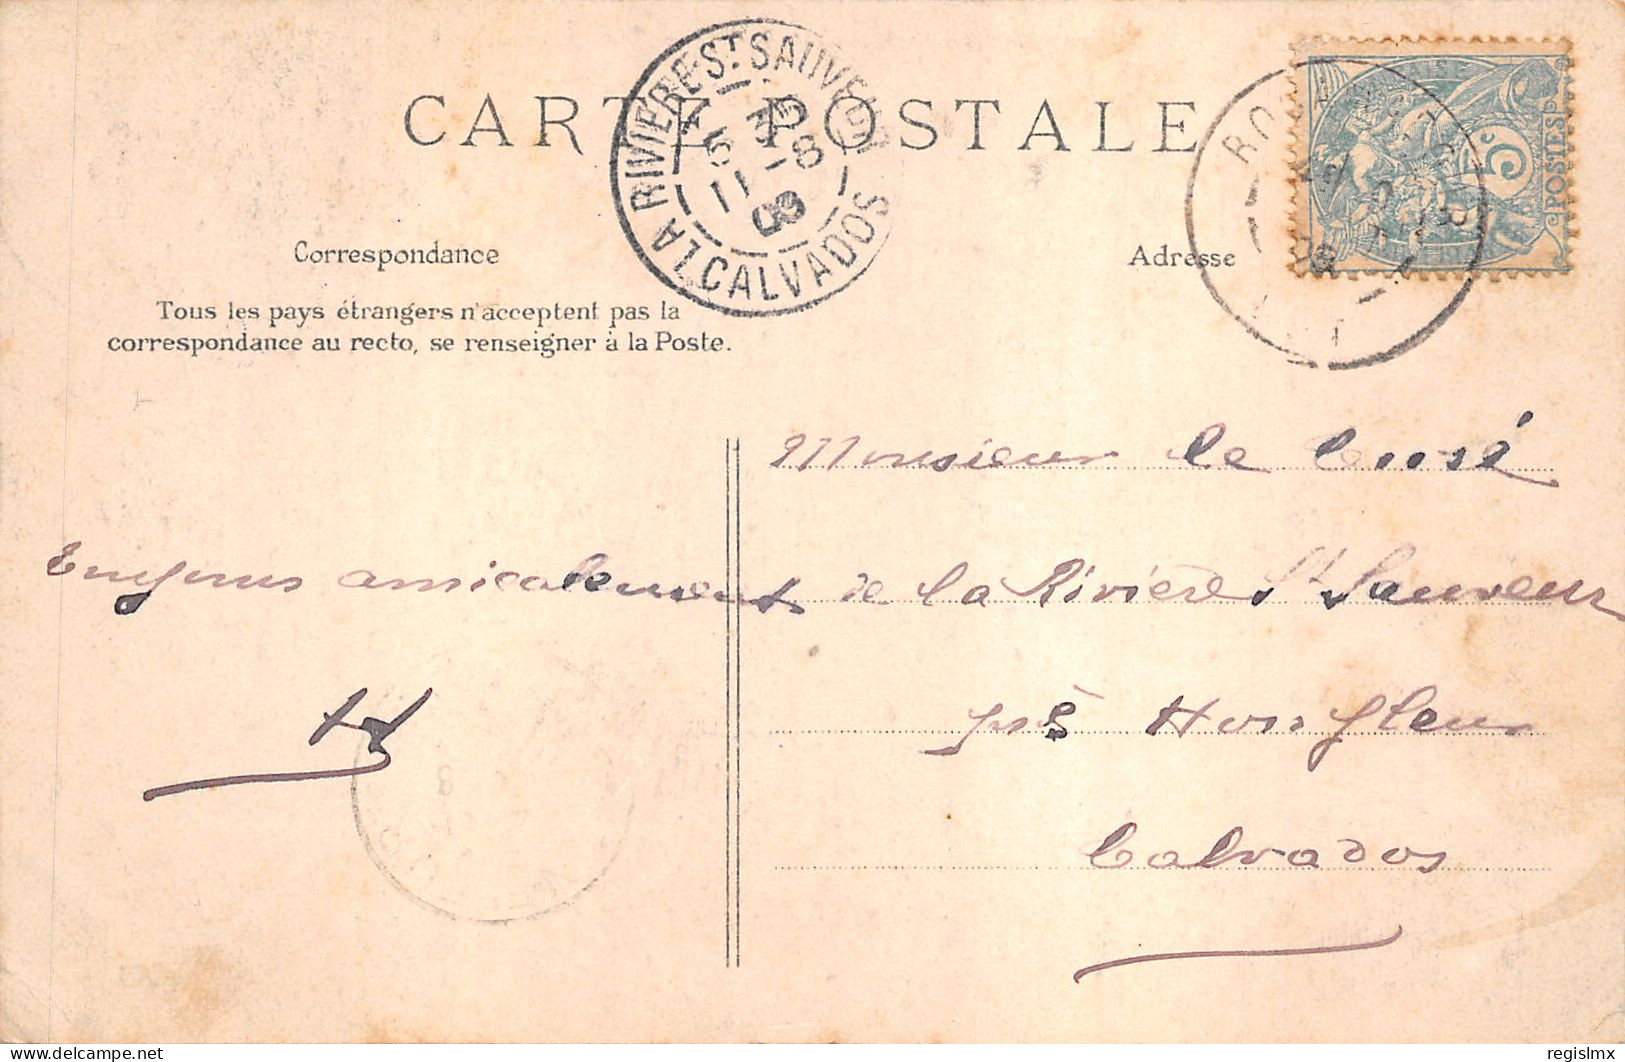 CARTE POSTALE
LA RIVIERE-ST SAUVEUR
CALVADOS
15
11 -8
08
5c
POSTES
Correspondance
Adresse
Tous les pays étrangers n'acceptent pas la
correspondance au recto, se renseigner à la Poste.
Monsieur le Curé
Toujours amicalement
de la Rivière St Sauveur
près Honfleur
Calvados
delcampe.net
regislmx